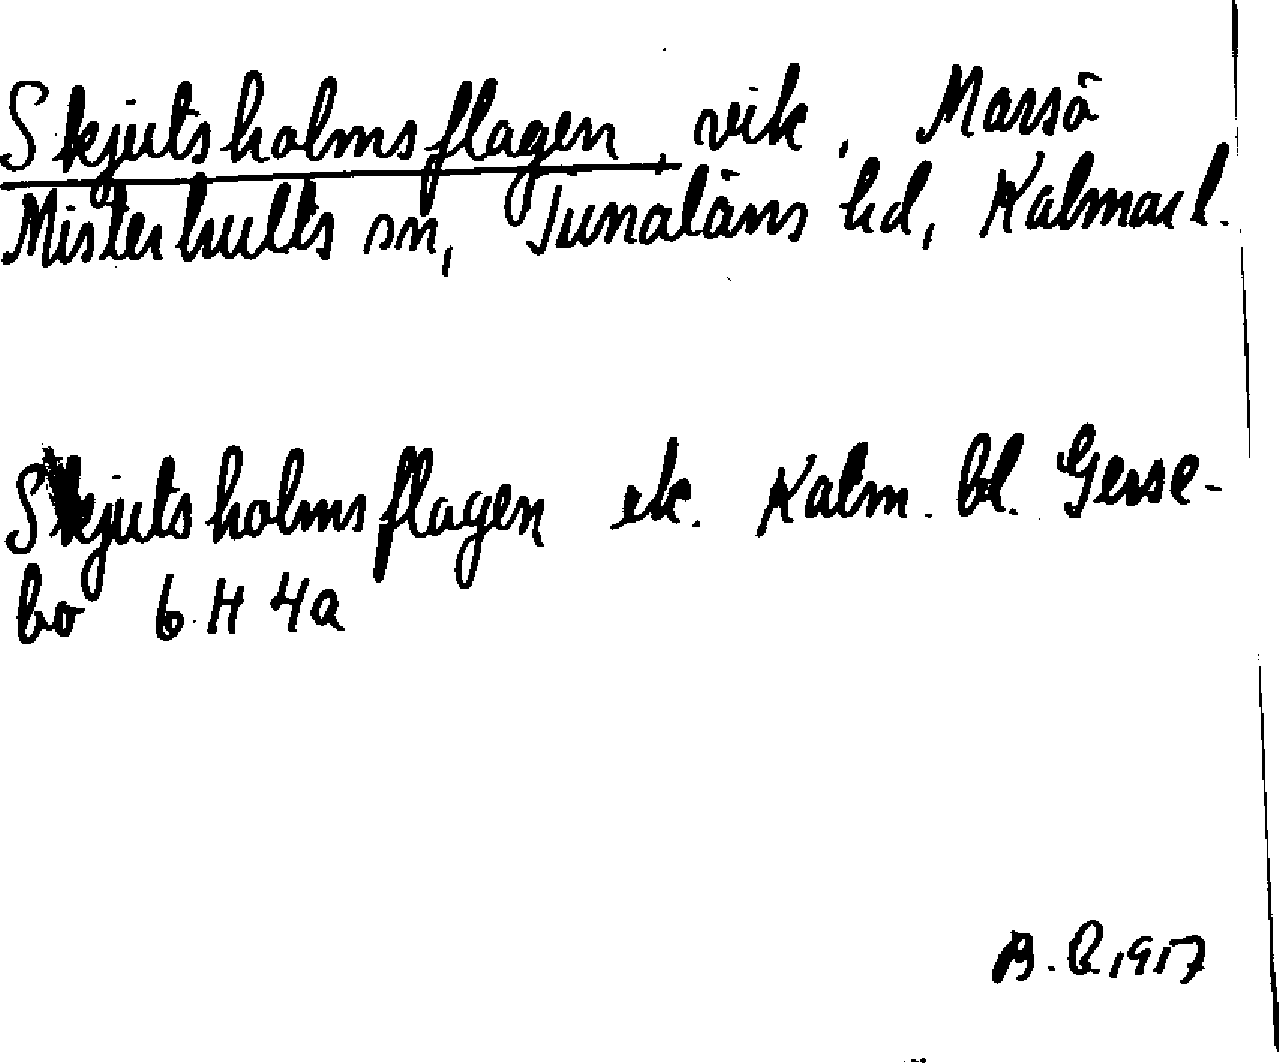 Skjutsholmsflagen, vik, Marsö
Misterhults sn, Tunaläns hd, Kalmar l.
Skjutsholmsflagen ek. Kalm. bl. Gerse-
bo 6 H 4a
B. B. 1957